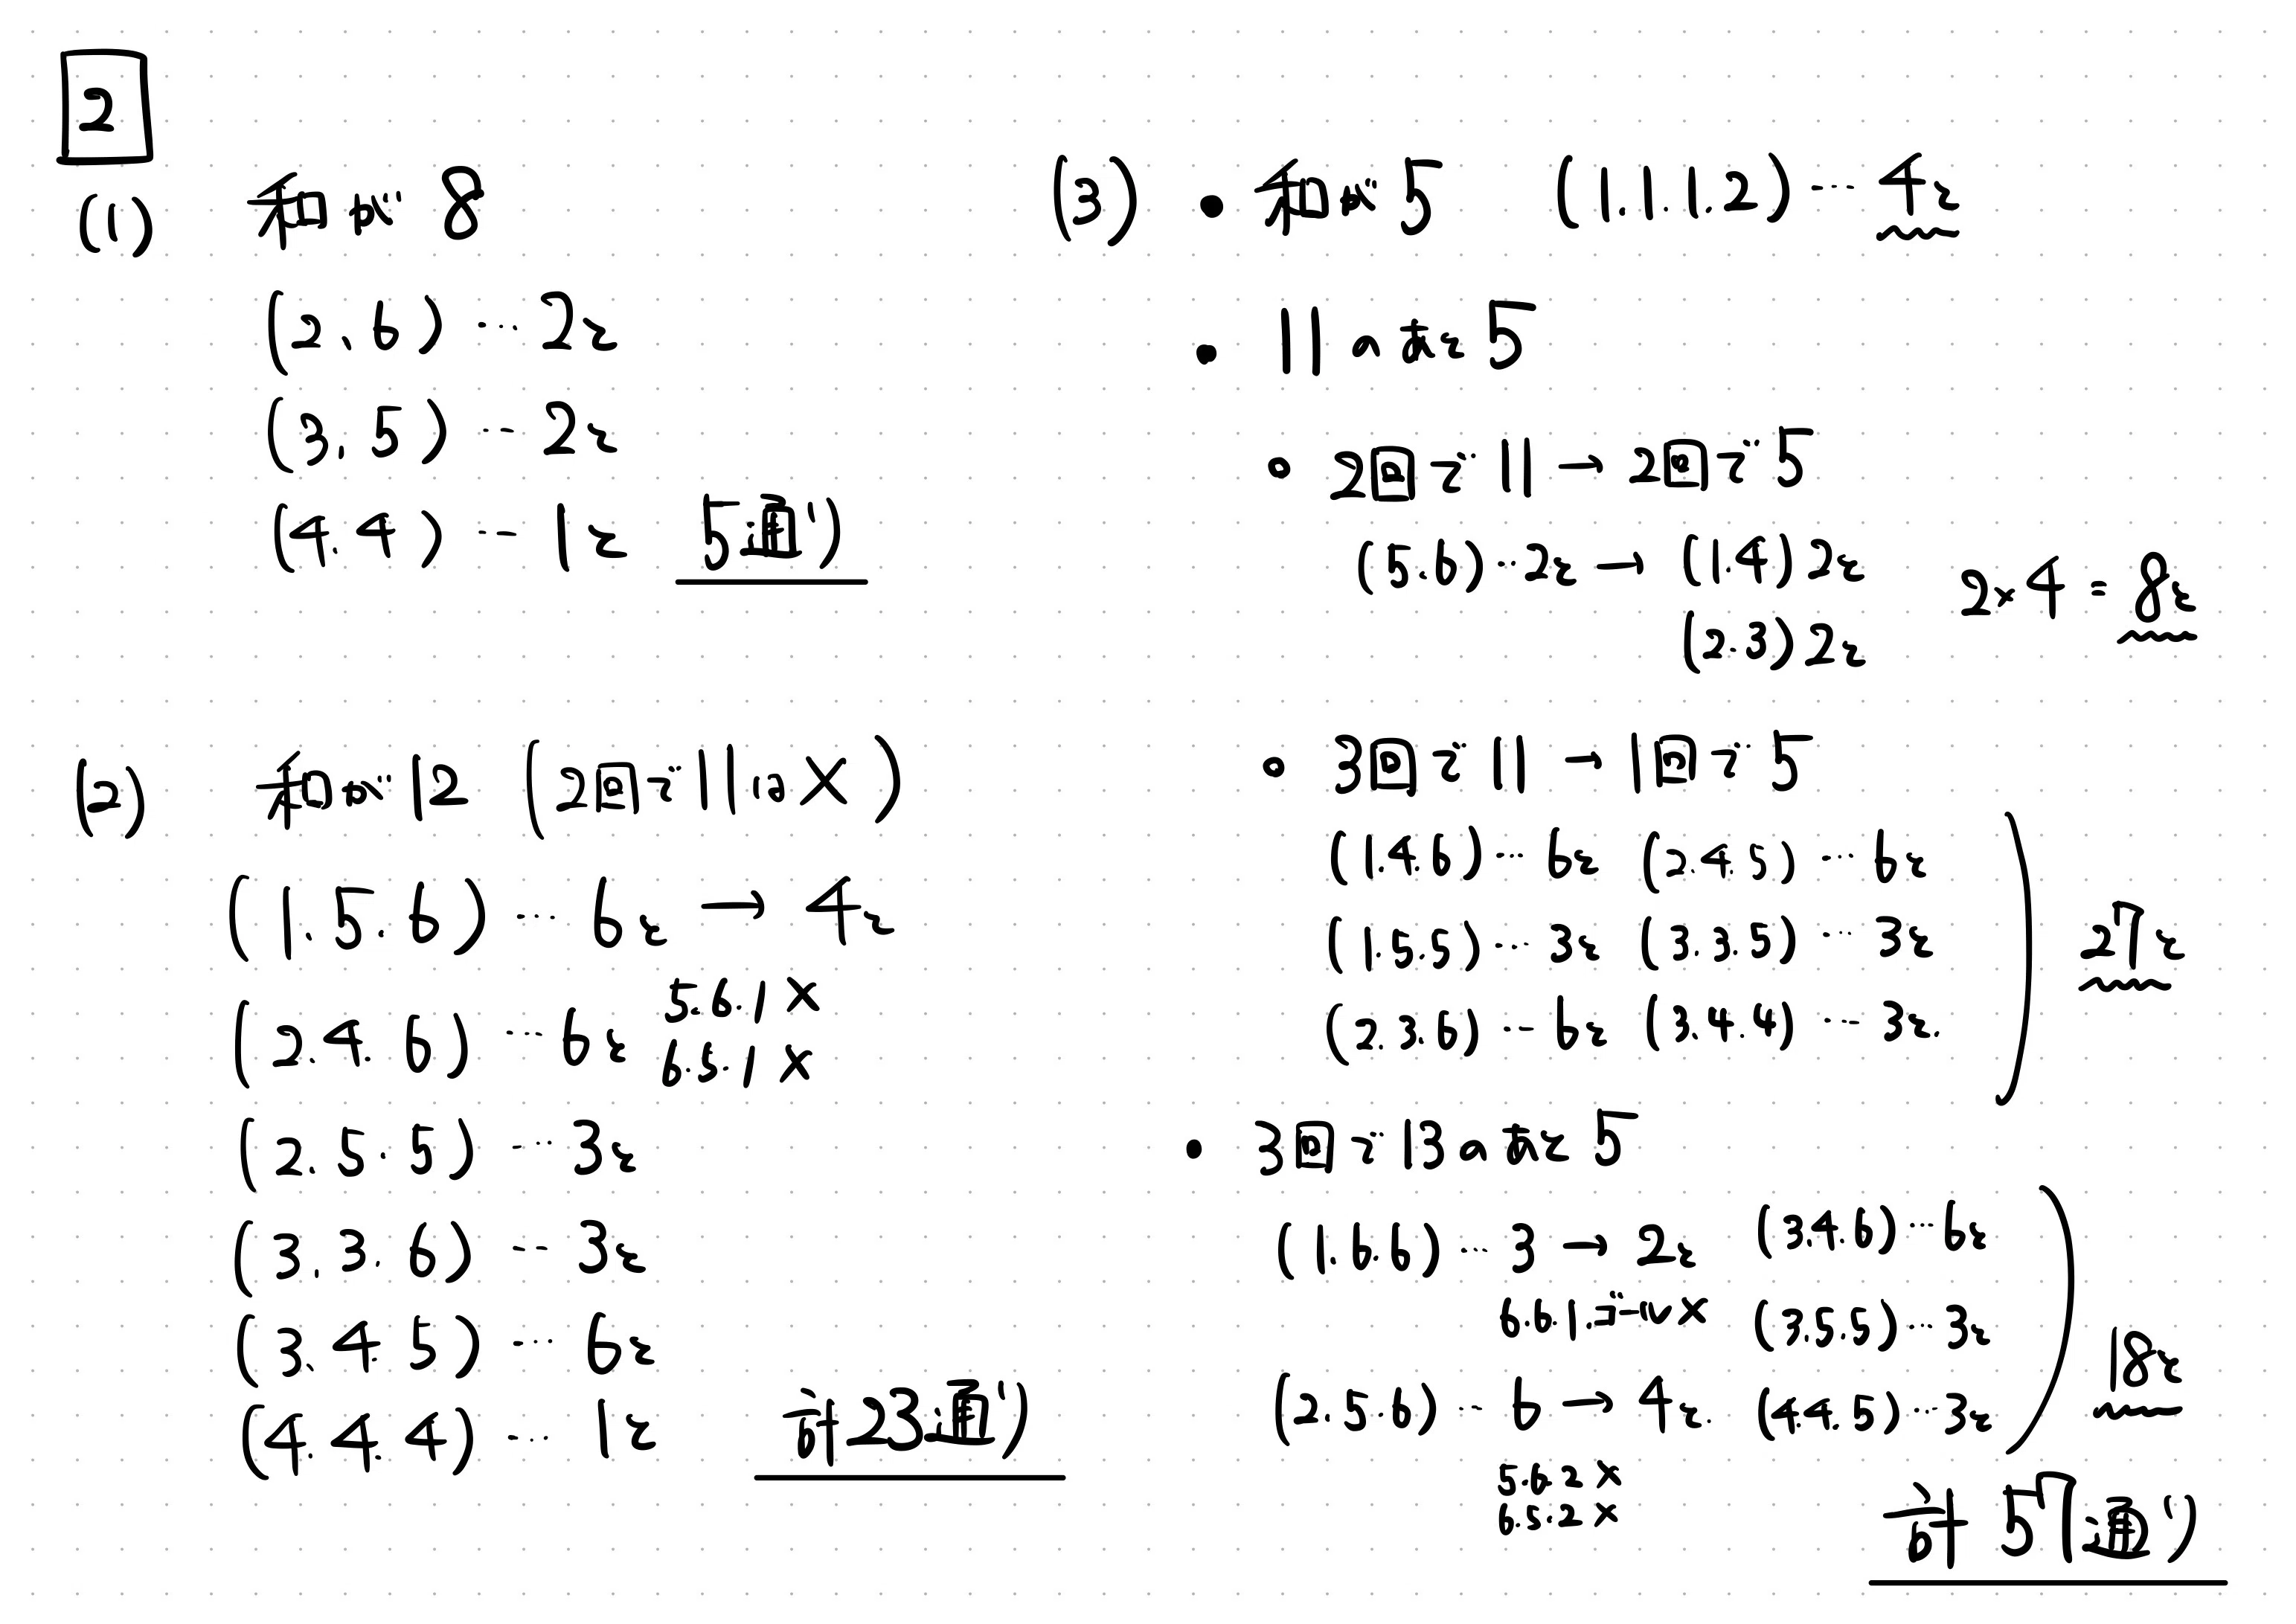 2
(1) 和が 8
(2, 6) … 2こ
(3, 5) … 2こ
(4.4) … 1こ 5通り
(2) 和が 12 (2回で 11は×)
(1.5.6) … 6こ → 4こ
5.6.1 ×
(2.4.6) … 6こ 6.5.1 ×
(2.5.5) … 3こ
(3.3.6) … 3こ
(3.4.5) … 6こ
(4.4.4) … 1こ 計23通り
(3) • 和が 5 (1.1.1.2) … 4こ
• 11のあと 5
○ 2回で 11 → 2回で 5
(5.6) … 2こ → (1.4) 2こ
2×4 = 8こ
(2.3) 2こ
○ 3回で 11 → 1回で 5
(1.4.6) … 6こ (2.4.5) … 6こ
(1.5.5) … 3こ (3.3.5) … 3こ 27こ
(2.3.6) … 6こ (3.4.4) … 3こ.
• 3回で 13のあと 5
(1.6.6) … 3 → 2こ (3.4.6) … 6こ
6.6.1.ゴール× (3.5.5) … 3こ 18こ
(2.5.6) … 6 → 4こ. (4.4.5) … 3こ
5.6.2 ×
6.5.2 ×
計 57通り